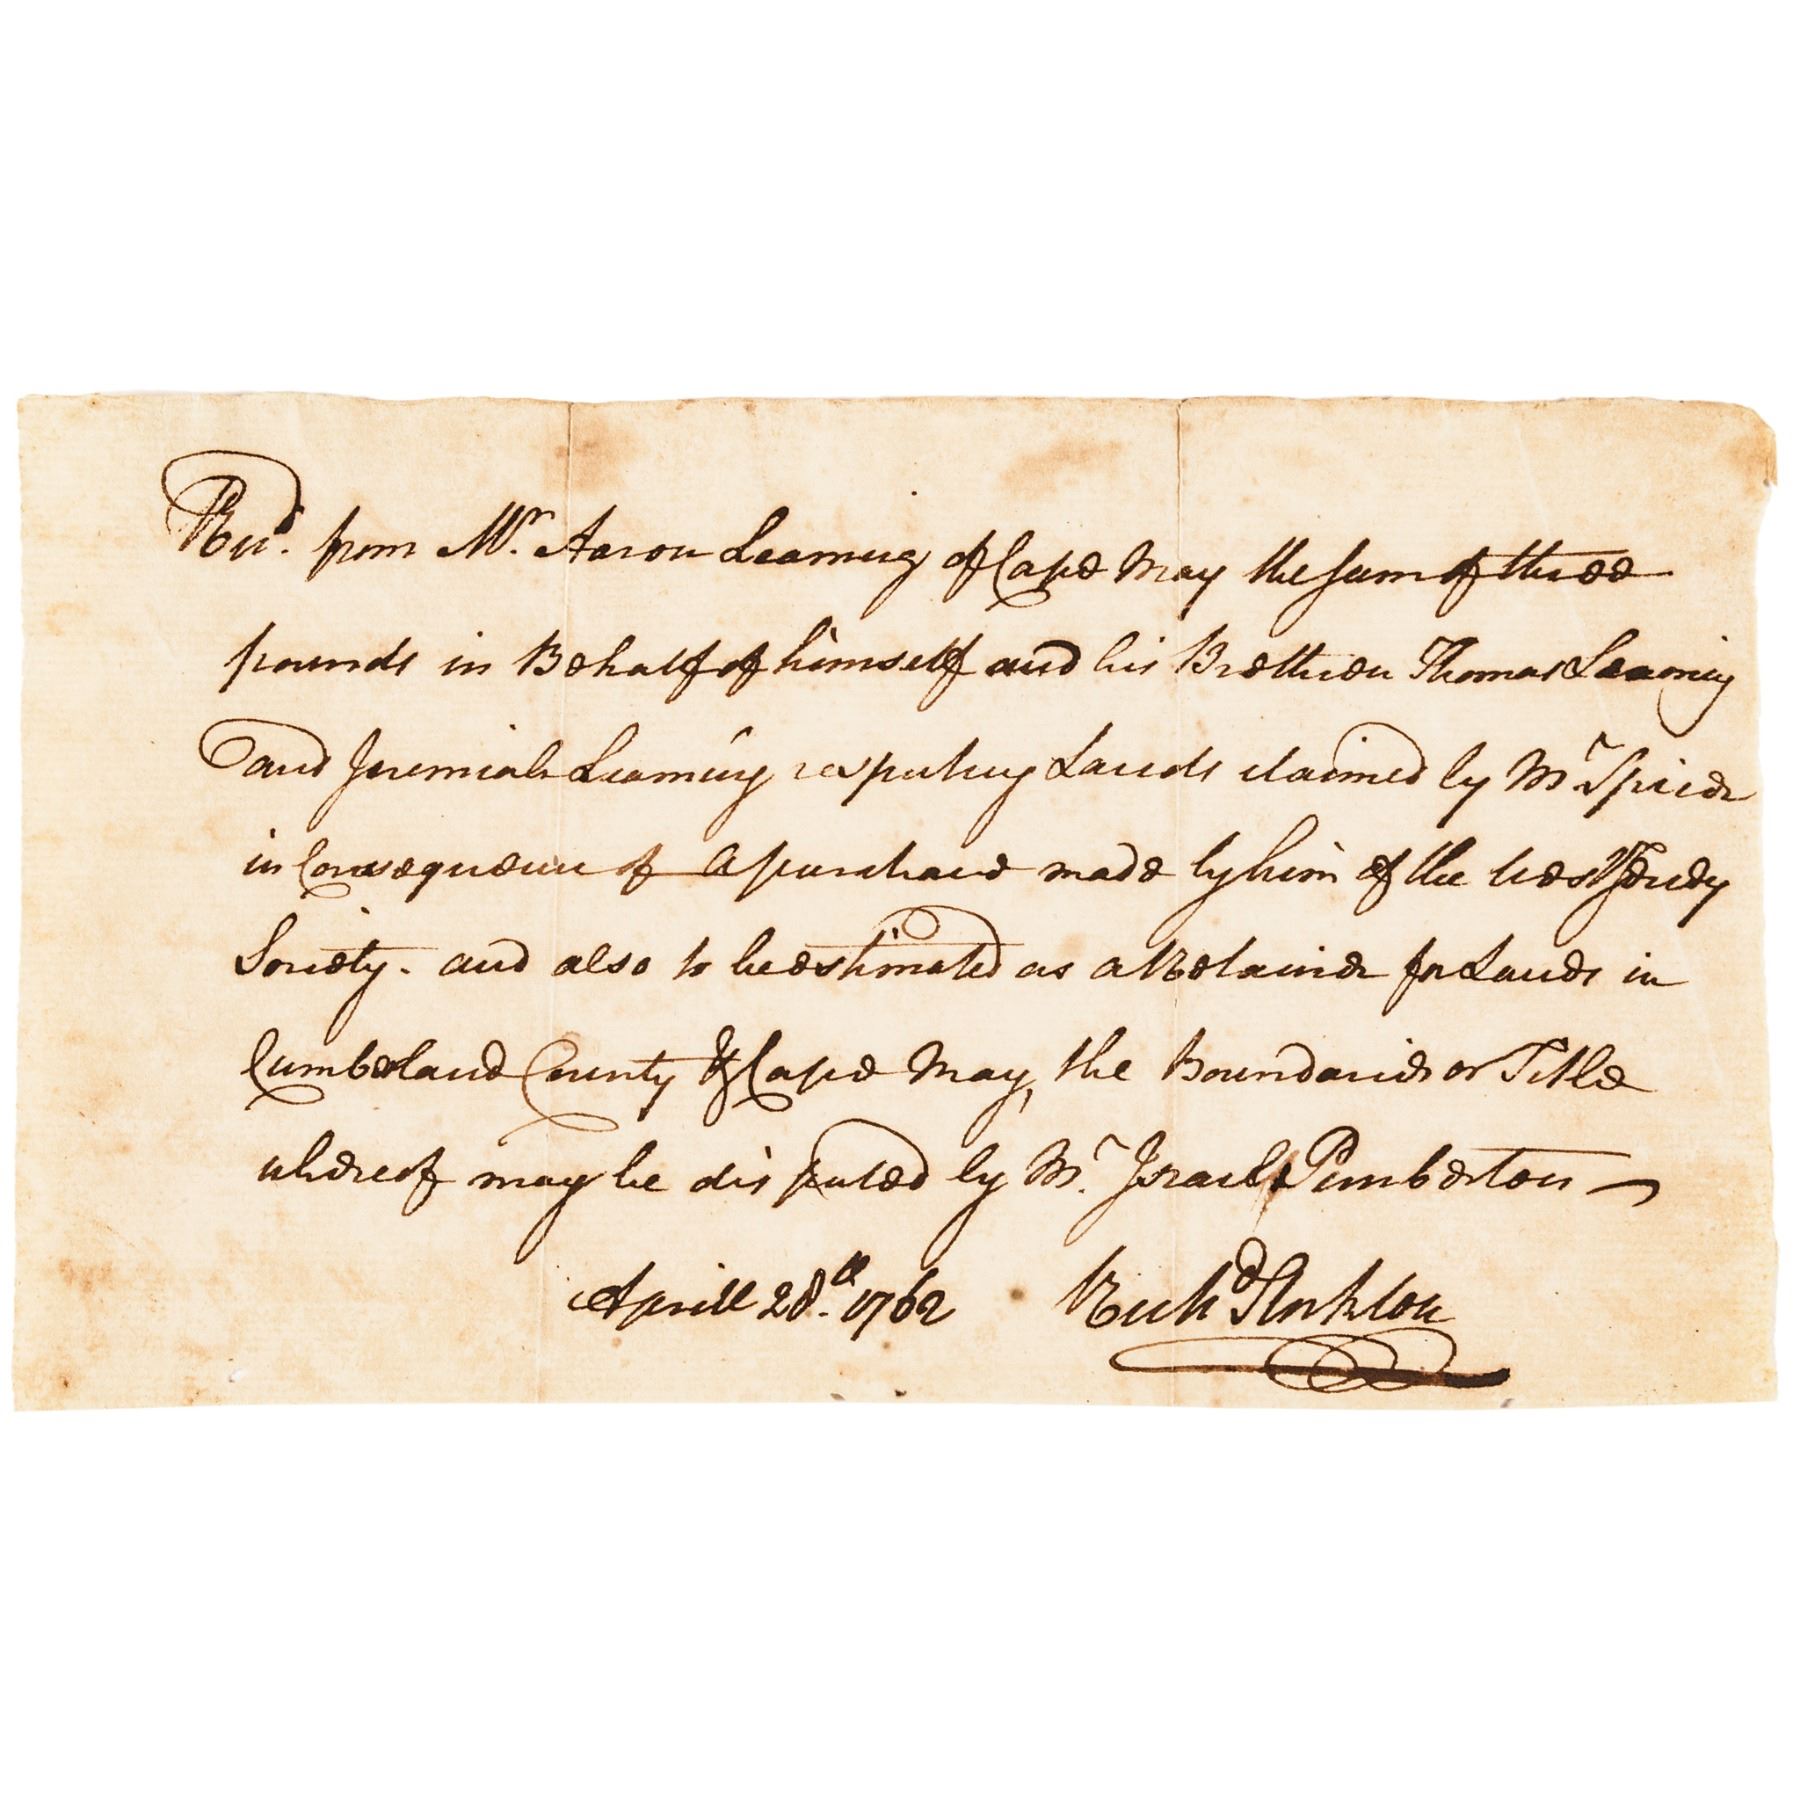 Recd. from Mr. Aaron Leaming of Cape May the sum of three
pounds in Behalf of himself and his Brethren Thomas Leaming
and Jeremiah Leaming respecting Lands claimed by Mr Spicer
in Consequence of a purchase made by him of the West Jersey
Society. and also to be estimated as a Retainer for Lands in
Cumberland County & Cape May, the Boundaries or Title
whereof may be disputed by Mr. Israel Pemberton
Aprill 28th. 1762 Richd Stockton